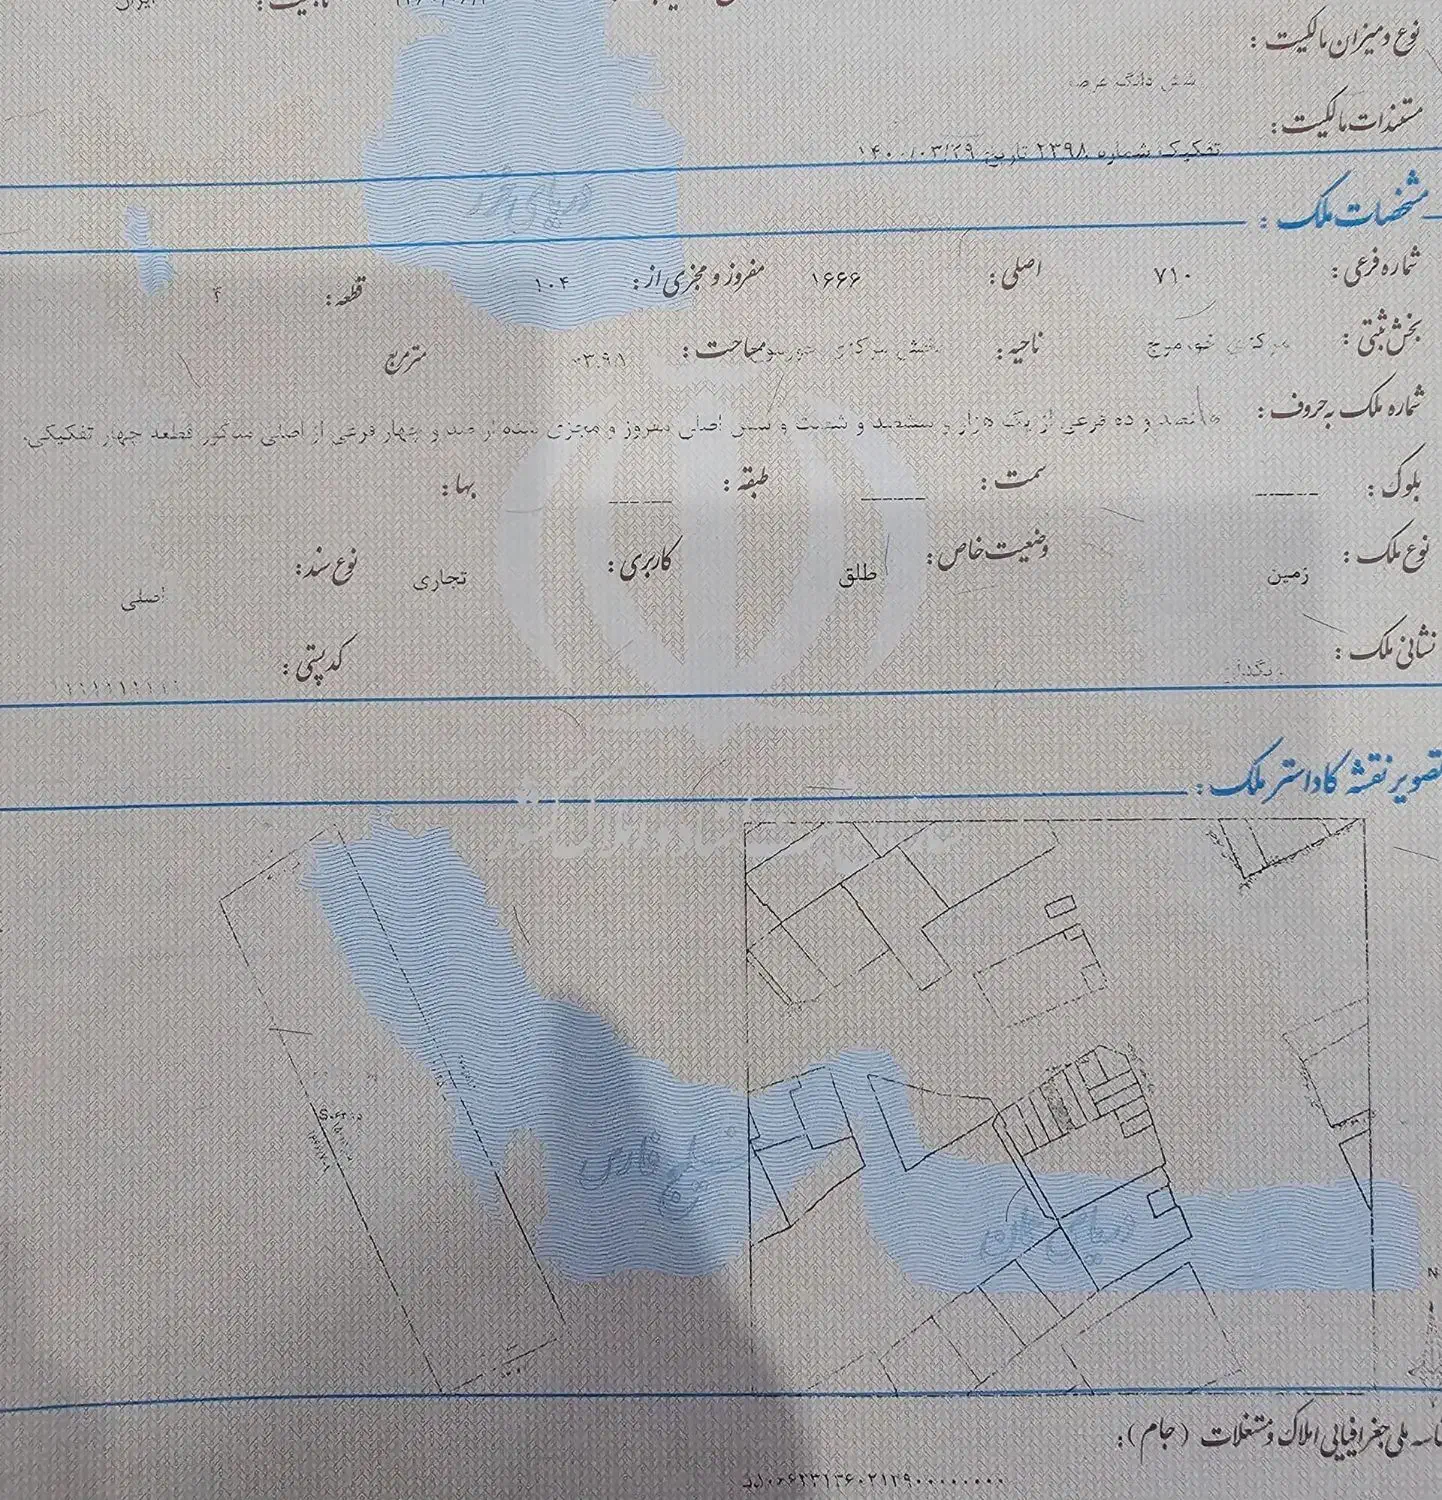 ایران
نوع و میزان مالکیت :
شش دانگ عرصه
مستندات مالکیت :
تفکیک شماره ۲۳۹۸ تاریخ ۱۴۰۰/۰۳/۲۹
دریای خزر
مشخصات ملک :
شماره فرعی : ۷۱۰ اصلی : ۱۶۶۶ مفروز و مجزی از : ۱۰۴ قطعه : ۴
بخش ثبتی : مرکزی خورموج ناحیه : بخش مرکزی خورموج مساحت : مترمربع
شماره ملک به حروف : هفتصد و ده فرعی از یک هزار و ششصد و شصت و شش اصلی مفروز و مجزی شده از صد و چهار فرعی از اصلی مذکور قطعه چهار تفکیکی.
بلوک : ------ سمت : ------ طبقه : ------ بها :
نوع ملک : زمین وضعیت خاص : طلق کاربری : تجاری نوع سند : اصلی
نشانی ملک : کدپستی : ۱۱۱۱۱۱۱۱۱۱
تصویر نقشه کاداستر ملک :
خلیج فارس
دریای عمان
N
شناسه ملی جغرافیایی املاک و مستغلات (جام) :